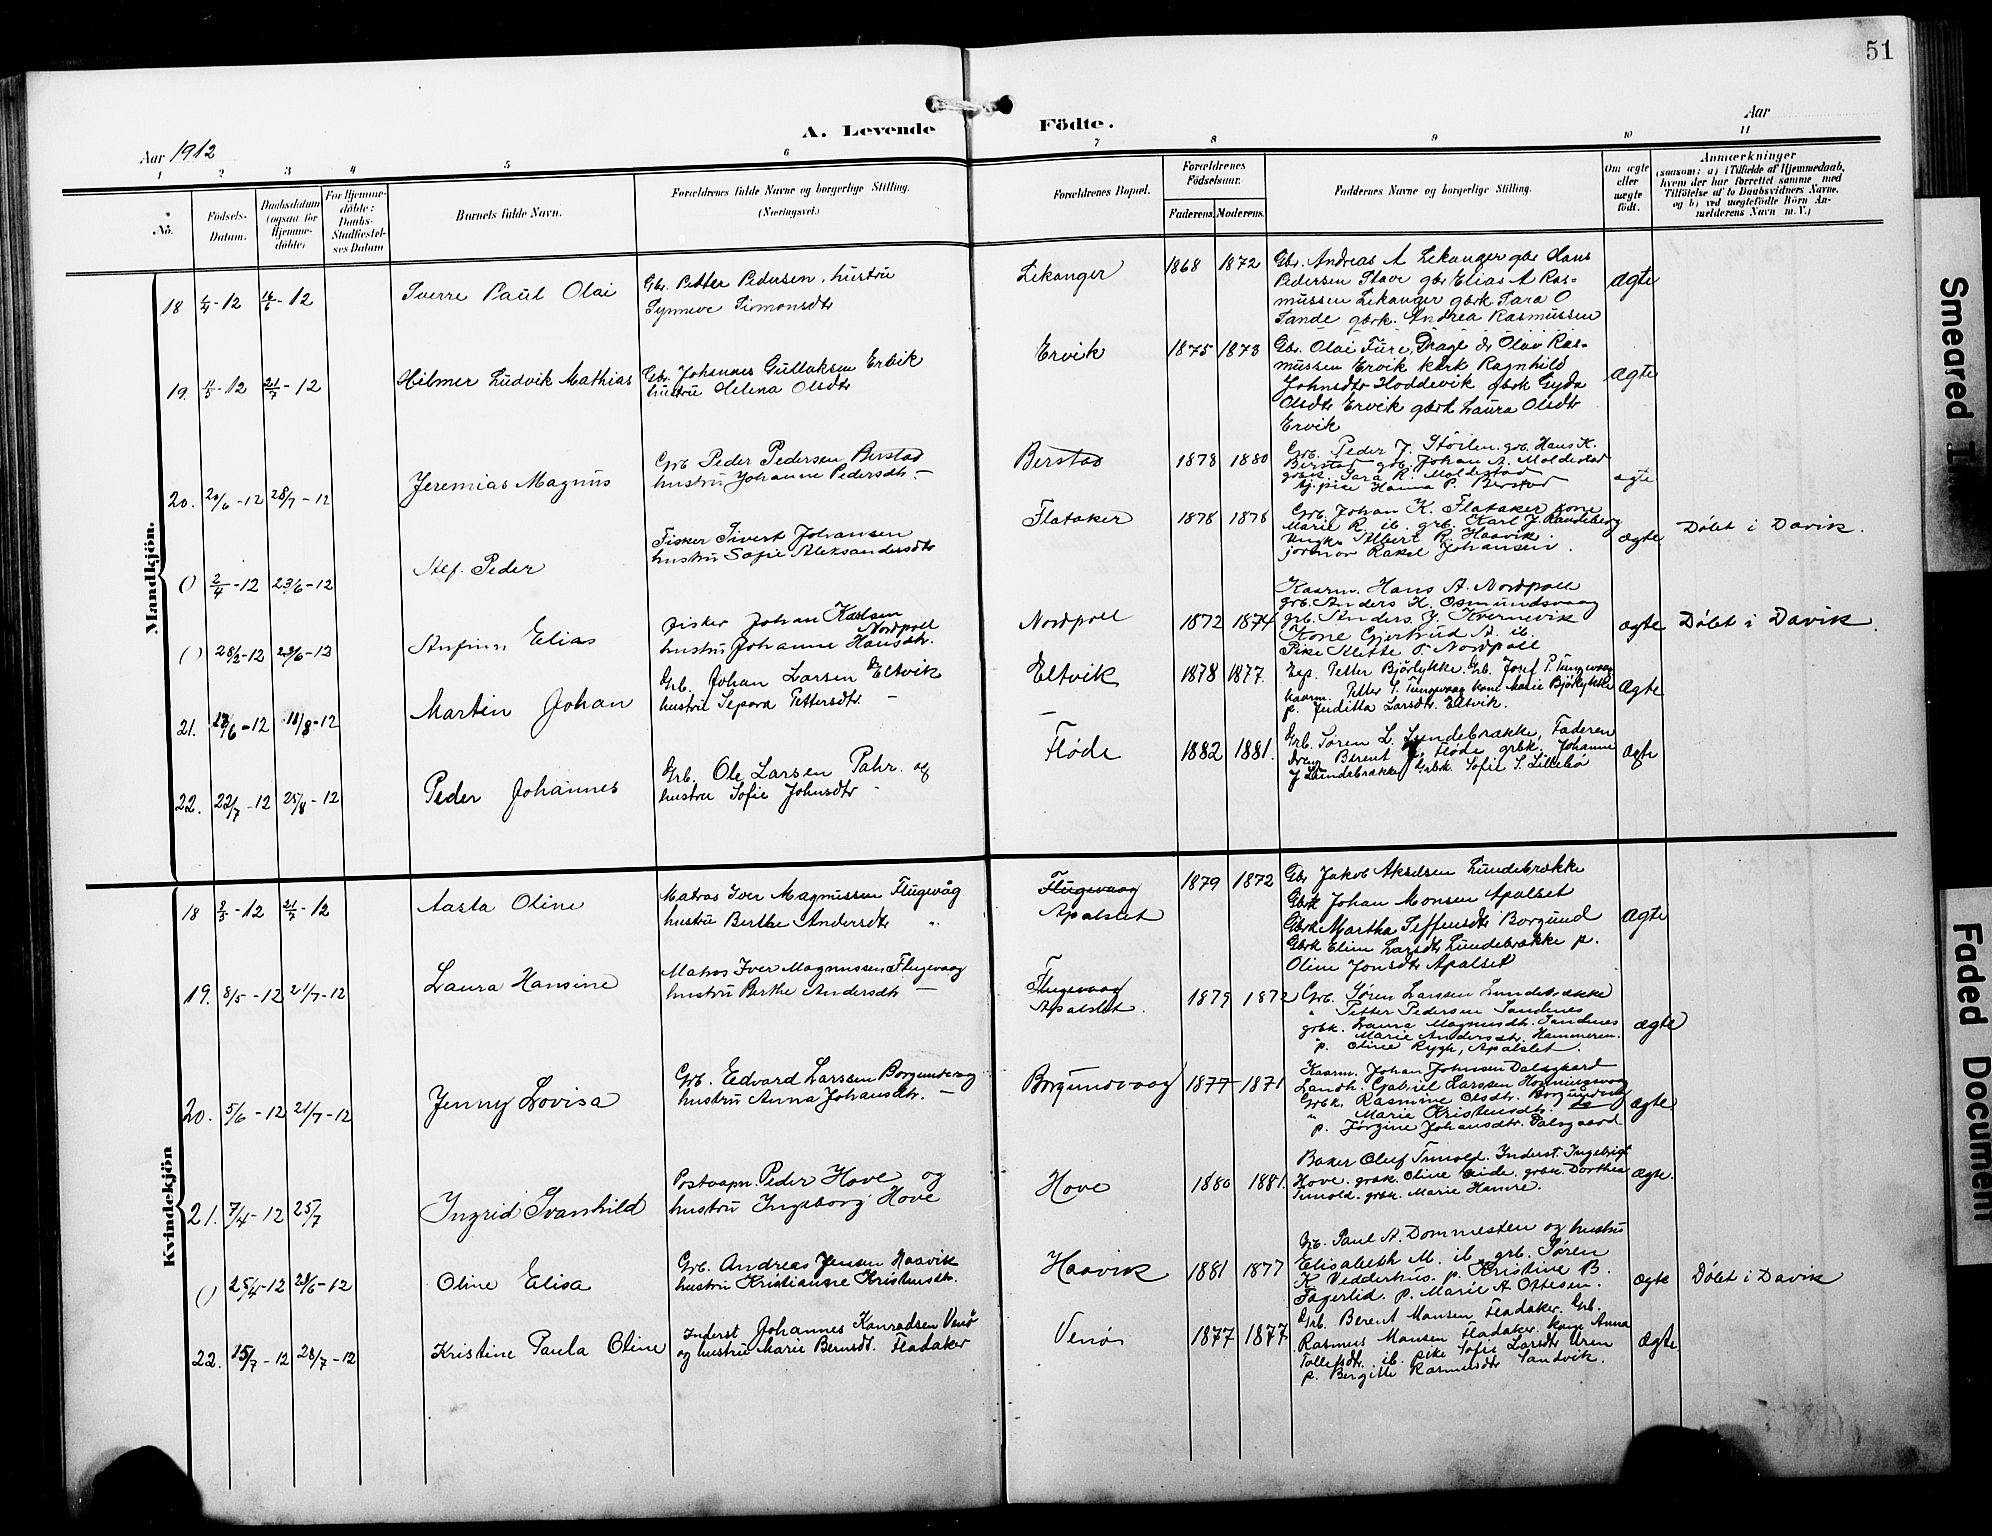 51
A. Levende Födte.
Aar 1912
Aar
1 2 3 4 5 6 7 8 9 10 11
No.
Födsels-Datum.
Daabsdatum (ogsaa for Hjemmedöbte)
For Hjemmedöbte: Daabs-Stadfestelses Datum
Barnets fulde Navn.
Forældrenes fulde Navne og borgerlige Stilling. (Næringsvei.)
Forældrenes Bopæl.
Forældrenes Födselsaar.
Faderens. Moderens.
Faddernes Navne og borgerlige Stilling.
Om ægte eller uægte födt.
Anmærkninger
(saasom: a) i Tilfælde af Hjemmedaab, hvem der har forrettet samme, med Tilföielse af to Daabsvidners Navne, og b) ved uægtefödte Börn Anmelderens Navn m. V.)
Mandkjön.
18 1/4-12 16/6-12 Sverre Paul Olai
Gbr. Petter Pedersen, hustru
Synneve Simonsdtr
Lekanger 1868 1872
Gbr. Andreas A Lekanger gbr Hans
Pedersen Stave gbr Elias A Ras-
mussen Lekanger gbrk. Sara O
Tande gbrk. Andrea Rasmussen
ægte
19. 11/5-12 21/7-12 Hilmer Ludvik Mathias
Gbr. Johannes Gullaksen Ervik
hustru Helena Olsdtr
Ervik 1875 1873
Gbr. Olai Fure, Drage dr Olav Ras-
mussen Ervik kark Ragnhild
Johnsdtr Hoddevik gbrk Gyda
Olsdtr Ervik gbrk Laura Olsdtr
Ervik
ægte
20. 20/6-12 28/7-12 Jeremias Magnus
Grb Peder Pedersen Berstad
hustru Johanne Pedersdtr. -
Berstad 1878 1880
Grb. Peder J. Stöilen. grb. Hans K.
Berstad grb. Johan A. Moldestad
grbk. Sara R. Moldestad
tj.pike Hanna P. Berstad
ægte
() 2/4-12 23/6-12 Alf. Peder
Fisker Sivert Johansen
hustru Sofie Aleksandersdtr
Flataker 1878 1876
Grb. Johan K. Flataker kone
Marie R. ib. grb. Karl J. Randeberg
ungk. Albert R. Haavik.
jormor Rakel Johansen.
ægte Dølet i Davik.
() 28/3-12 23/6-12 Anfinn Elias
Fisker Johan Karlsen
Nordpoll
hustru Johanne Hansdtr.
Nordpoll 1872 1874
Kaarm. Hans A. Nordpoll
grb. Anders K. Osmundsvaag
grb. Anders J. Kvernevik
Kone Gjertrud A. ib.
Pike Klette T. Nordpoll
ægte Dølet i Davik.
21. 12/6-12 11/8-12 Martin Johan
Grb. Johan Larsen Eltvik
hustru Sepora Pettersdtr. -
Eltvik 1878 1877.
Eep. Petter Bjørlykke. Grb. Josef P. Tungevaag
kaarm. Petter S. Tungevaag kone Marie Bjørlykke
p. Juditta Larsdtr. Eltvik.
ægte
22. 22/7-12 25/8-12 Peder Johannes
Grb. Ole Larsen Pahr. og
hustru Sofie Johnsdtr -
Fløde 1882 1881.
Grb. Søren L. Lundebrække, Faderen
dreng Berent Fløde, grbk. Johanne
J Lundebrække Grbk. Sofie S. Lillebø
ægte
Kvindekjön
18 2/3-12 21/7-12 Aasta Oline
Matros Iver Magnussen Flugevåg
hustru Berthe Andersdtr "
Flugevaag
Apalset 1879 1872
Gbr Jakob Akselsen Lundebrække
Gbrk Johan Monsen Apalset
Gbrk Martha Steffensdtr Borgund
Gbrk Elin Larsdtr Lundebrække p.
Oline Jonsdtr Apalset
ægte
19. 8/5-12 21/7-12 Laura Hansine
Matros Iver Magnussen Flugevaag
hustru Berthe Andersdtr -
Flugevaag
Apalslet. 1879 1872
Grb. Søren Larssen Lundebrække
" Petter Pedersen Sandenes
grbk. Laura Magnusdtr. Sandenes
" Marie Andersdtr. Hammeren.
p. Oline Rygh, Apalslet.
ægte
20. 5/6-12 21/7-12 Jenny Lovisa
Grb. Edvard Larssen Borgundvaag
hustru Anna Johansdtr. -
Borgundvaag 1877 1871
Kaarm. Johan Johnsen Dalsgaard
Landh. Gabriel Larssen Honningsvaag
Grbk. Rasmine Olsdtr. Borgundvaag
" Marie Kristensdtr. do
p. Jørgine Johansdtr. Dalsgaard
ægte.
21. 7/4-12 25/7 Ingrid Svanhild
Postaapn. Peder Hove og
hustru Ingeborg Hove
Hove 1880 1881.
Baker Oluf Tunold. Inderst Ingebrigt
Hove. grbk. Oline Eide. grbk. Dorthea
Tunold. grbk. Marie Hamre.
ægte.
() 25/4-12 23/6-12 Oline Elisa
Grb. Andreas Jensen Haavik
hustru Kristianne Kristensdtr.
Haavik 1881 1877
Grb. Paul A. Dommesten og hustru
Elisabeth M. ib. grb. Søren
K. Vedderhus. p. Kristine B.
Fagerlid. p. Marie A. Ottesen.
ægte Dølet i Davik
22. 15/7-12 28/7-12 Kristine Paula Oline
Inderst Johannes Konradsen Venø
og hustru Marie Berntsdt. Fladaker
Venø 1877 1877
Grb. Berent Monsen Fladaker. Grb.
Rasmus Monsen Fladaker. kone Anna
Tollefsdtr. ib. pike Sofie Larsdtr Uren
p. Bergitte Rasmusdtr Sandvik.
ægte
Smeared
Faded Document